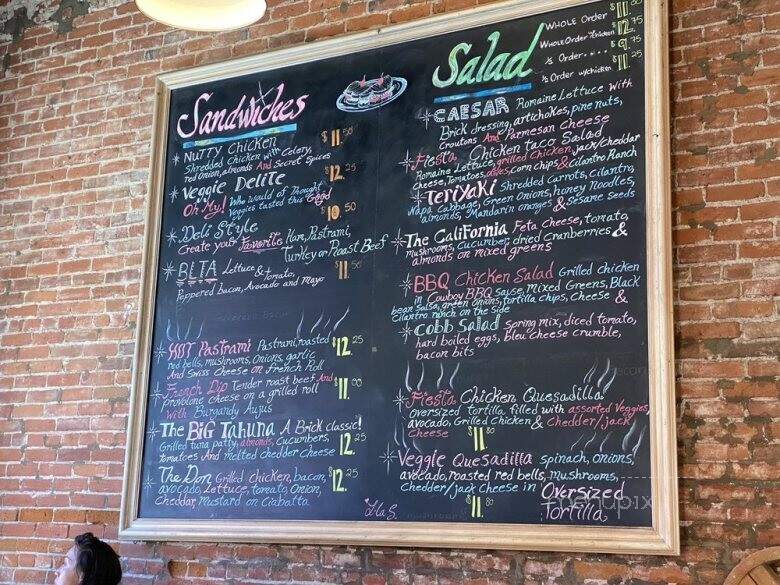 Sandwiches
Nutty Chicken $11.50
Shredded Chicken with Celery,
red Onion, almonds And Secret Spices
Veggie Delite $12.25
Oh My! Who would of Thought
Veggies tasted this Good
Deli Style $10.50
Create your Favorite Ham, Pastrami,
Turkey or Roast Beef
BLTA Lettuce & Tomato, $11.50
Peppered bacon, Avocado and mayo
HOT Pastrami Pastrami, roasted $12.25
red bells, mushrooms, Onions, garlic
And Swiss cheese on French Roll
French Dip Tender roast beef And $11.00
provolone cheese on a grilled roll
With Burgandy Aujus
The Big Tahuna A Brick classic!
Grilled tuna patty, almonds, cucumbers, $12.25
Tomatoes And melted chedder cheese
The Don Grilled chicken, bacon, $12.25
avocado, Lettuce, tomato, Onion,
Cheddar, Mustard on Ciabatta
Salad
Whole Order
Whole Order w/chicken $12.75
½ Order $9.75
½ Order w/chicken $11.25
CAESAR Romaine Lettuce with
Brick dressing, artichokes, pine nuts,
Croutons And Parmesan Cheese
Fiesta Chicken taco Salad
Romaine Lettuce, grilled Chicken, jack/cheddar
Cheese, Tomatoes, olives, corn chips & Cilantro Ranch
Teriyaki Shredded Carrots, cilantro,
Napa Cabbage, Green Onions, honey Noodles,
almonds, Mandarin oranges & sesame seeds
The California Feta cheese, tomato,
mushrooms, cucumber, dried Cranberries &
almonds on mixed greens
BBQ Chicken Salad Grilled chicken
in Cowboy BBQ sause, mixed Greens, Black
bean salsa, green onions, tortilla chips, cheese &
Cilantro ranch on the side
Cobb Salad spring mix, diced tomato,
hard boiled eggs, bleu cheese crumble,
bacon bits
Fiesta Chicken Quesadilla
oversized tortilla filled with assorted Veggies,
avocado, Grilled chicken & Chedder/jack
Cheese $11.80
Veggie Quesadilla spinach, onions,
avocado, roasted red bells, mushrooms,
Chedder/jack cheese in Oversized
Tortilla $11.80